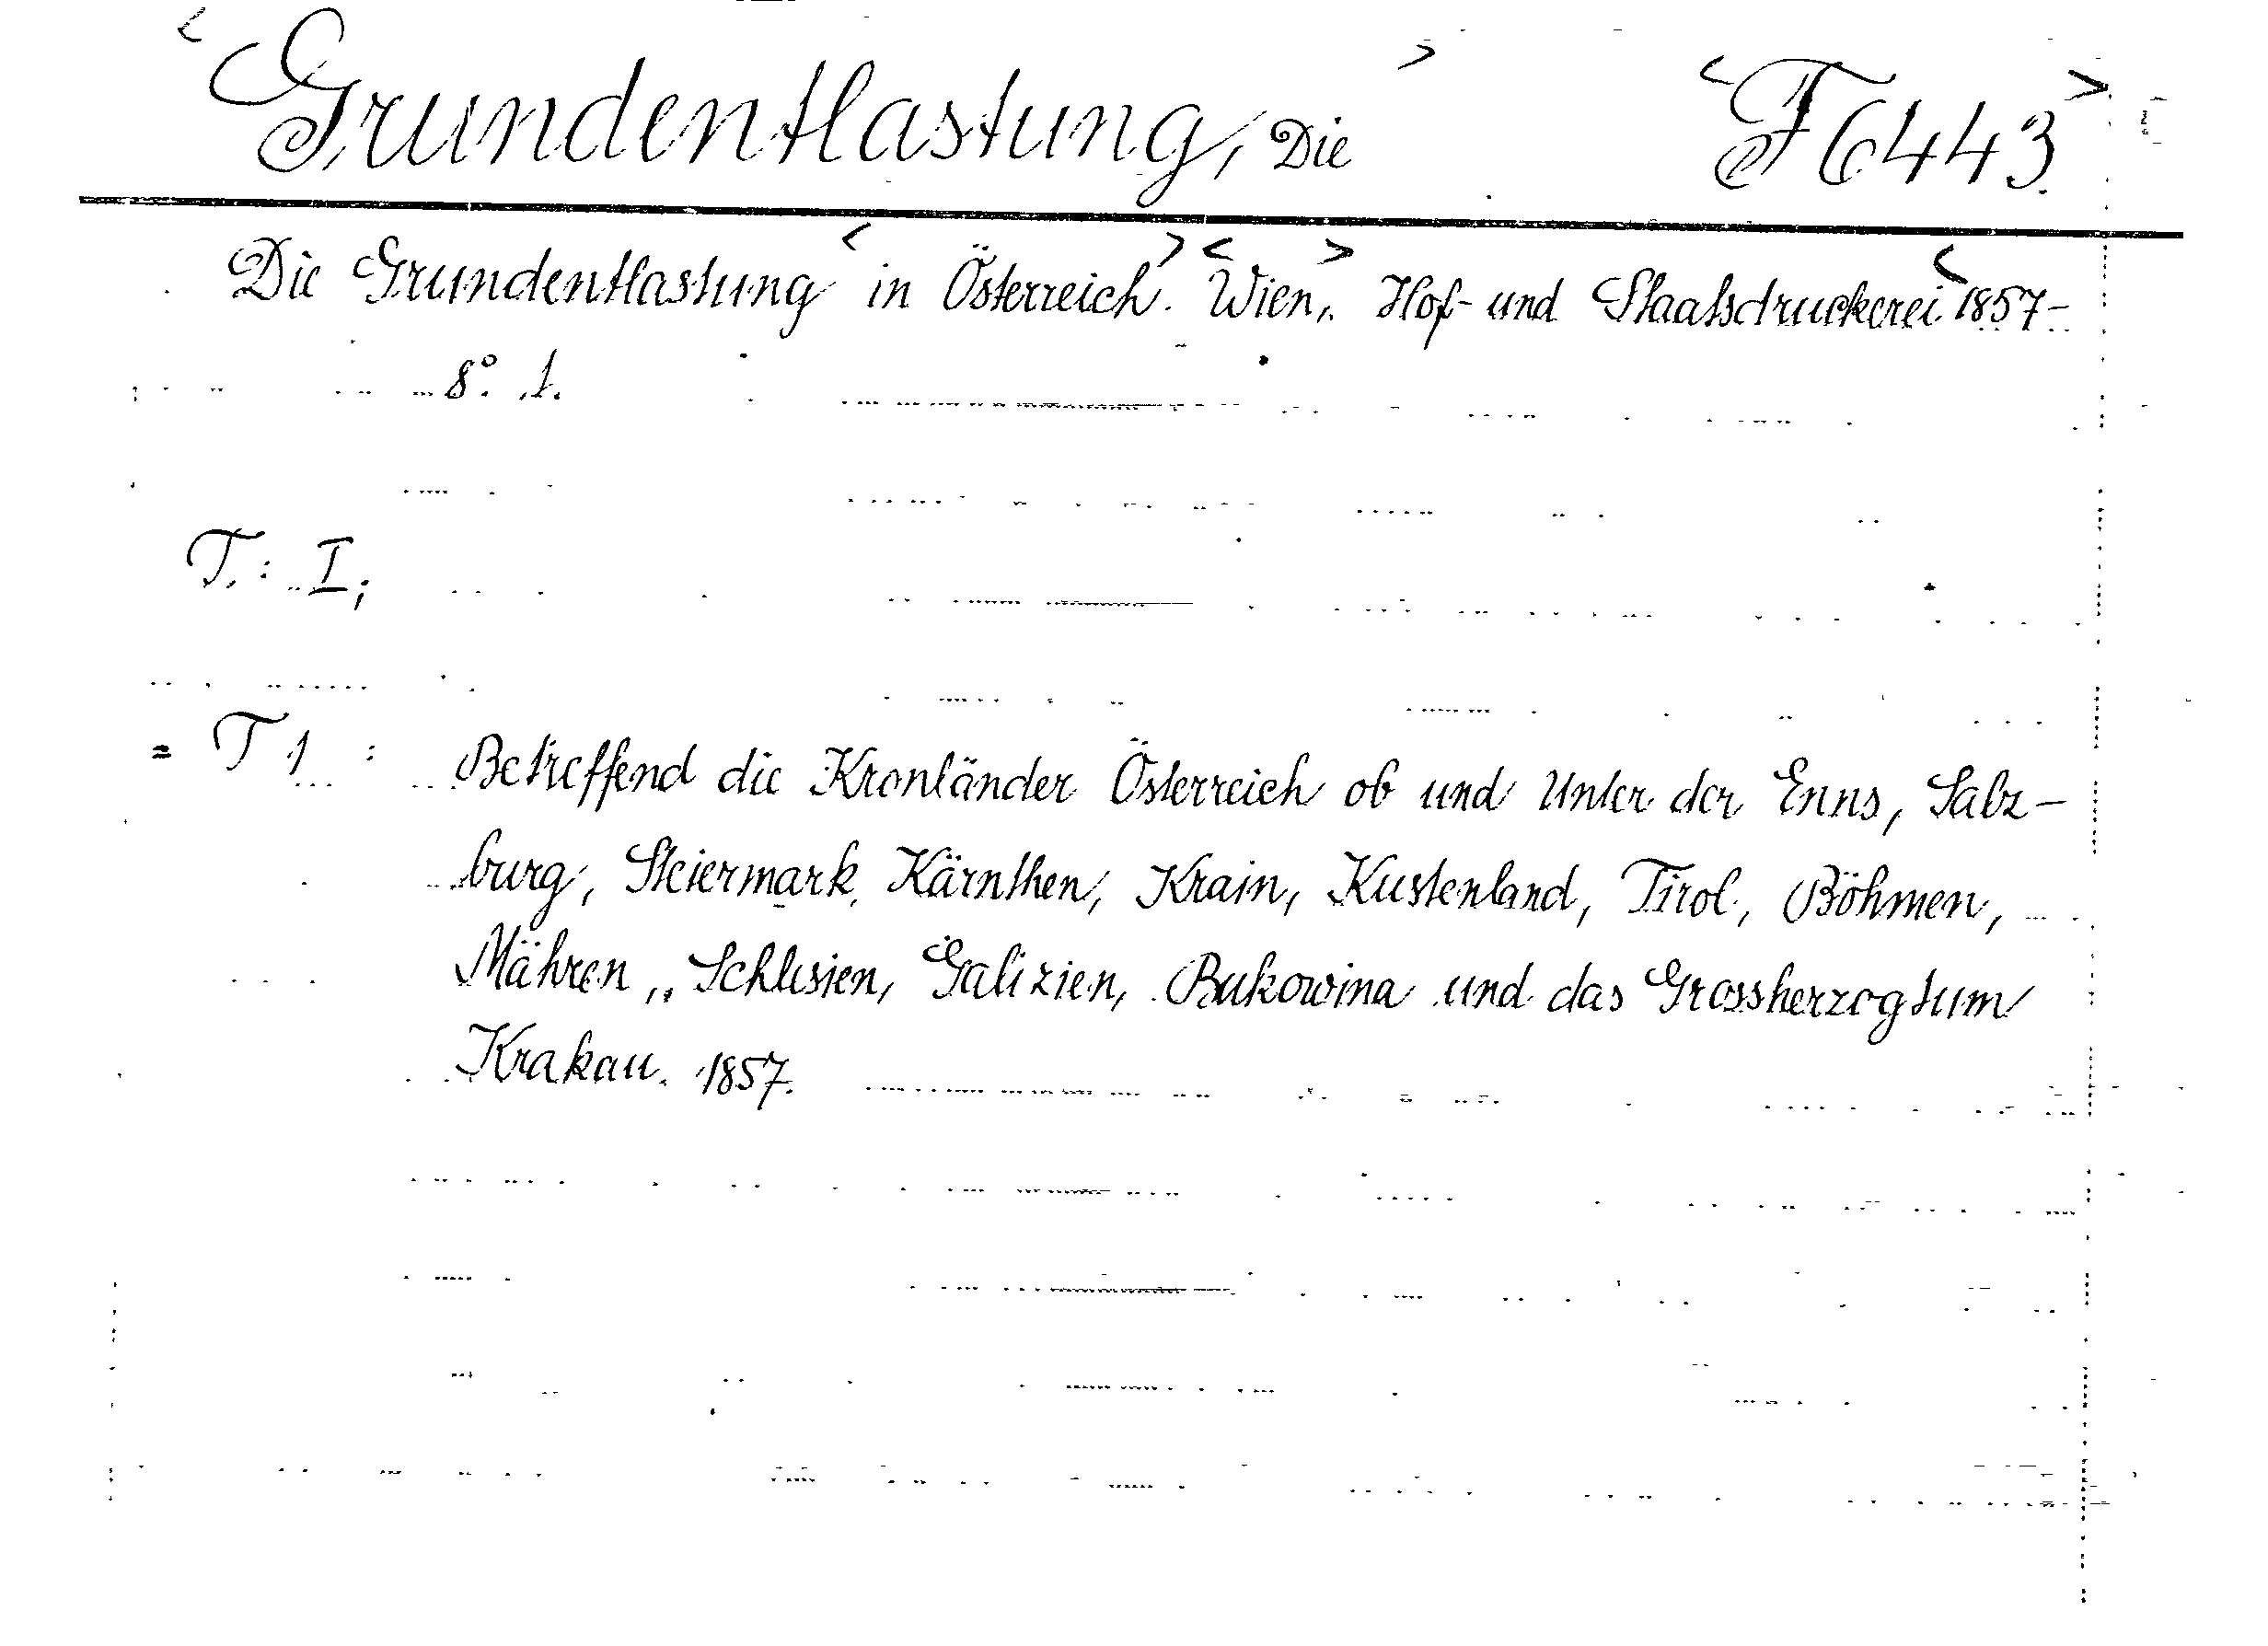 < Grundentlastung, Die > < F 6443 >
Die Grundentlastung < in Österreich. > < Wien, > Hof- und Staatsdruckerei < 1857-
8°. 1.
T.: I;
= T 1 : Betreffend die Kronländer Österreich ob und Unter der Enns, Salz-
burg, Steiermark, Kärnthen, Krain, Kustenland, Tirol, Böhmen,
Mähren, Schlesien, Galizien, Bukowina und das Grossherzogtum
Krakau. 1857.